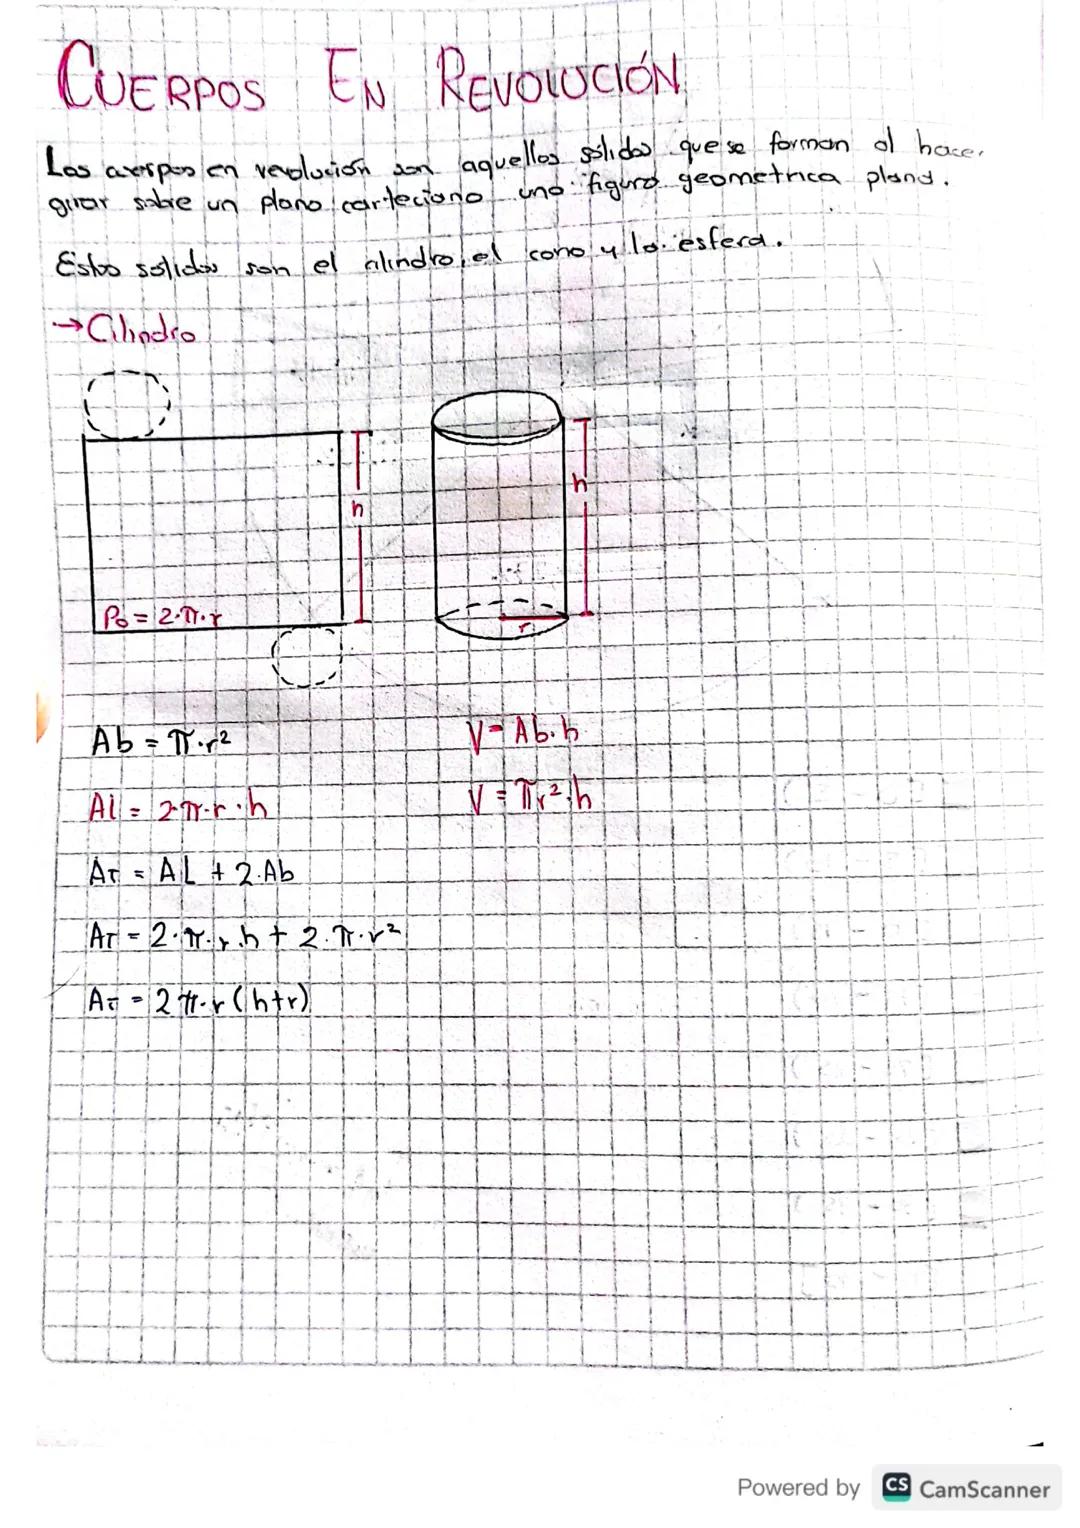 CUERPOS EN REVOLUCIÓN
Los cuerpos en revolución son aquellos sólidos que se forman al hacer
girar sobre un plano carteciano una figura geometrica plana.
Estos solidos son el cilindro, el cono y la esfera.
→ Cilindro
h
h
Po = 2·π·r
r
Ab = π·r²
V = Ab·h
Al = 2·π·r·h
V = πr²·h
AT = AL + 2·Ab
AT = 2·π·r·h + 2·π·r²
AT = 2π·r(h+r)
Powered by CS CamScanner